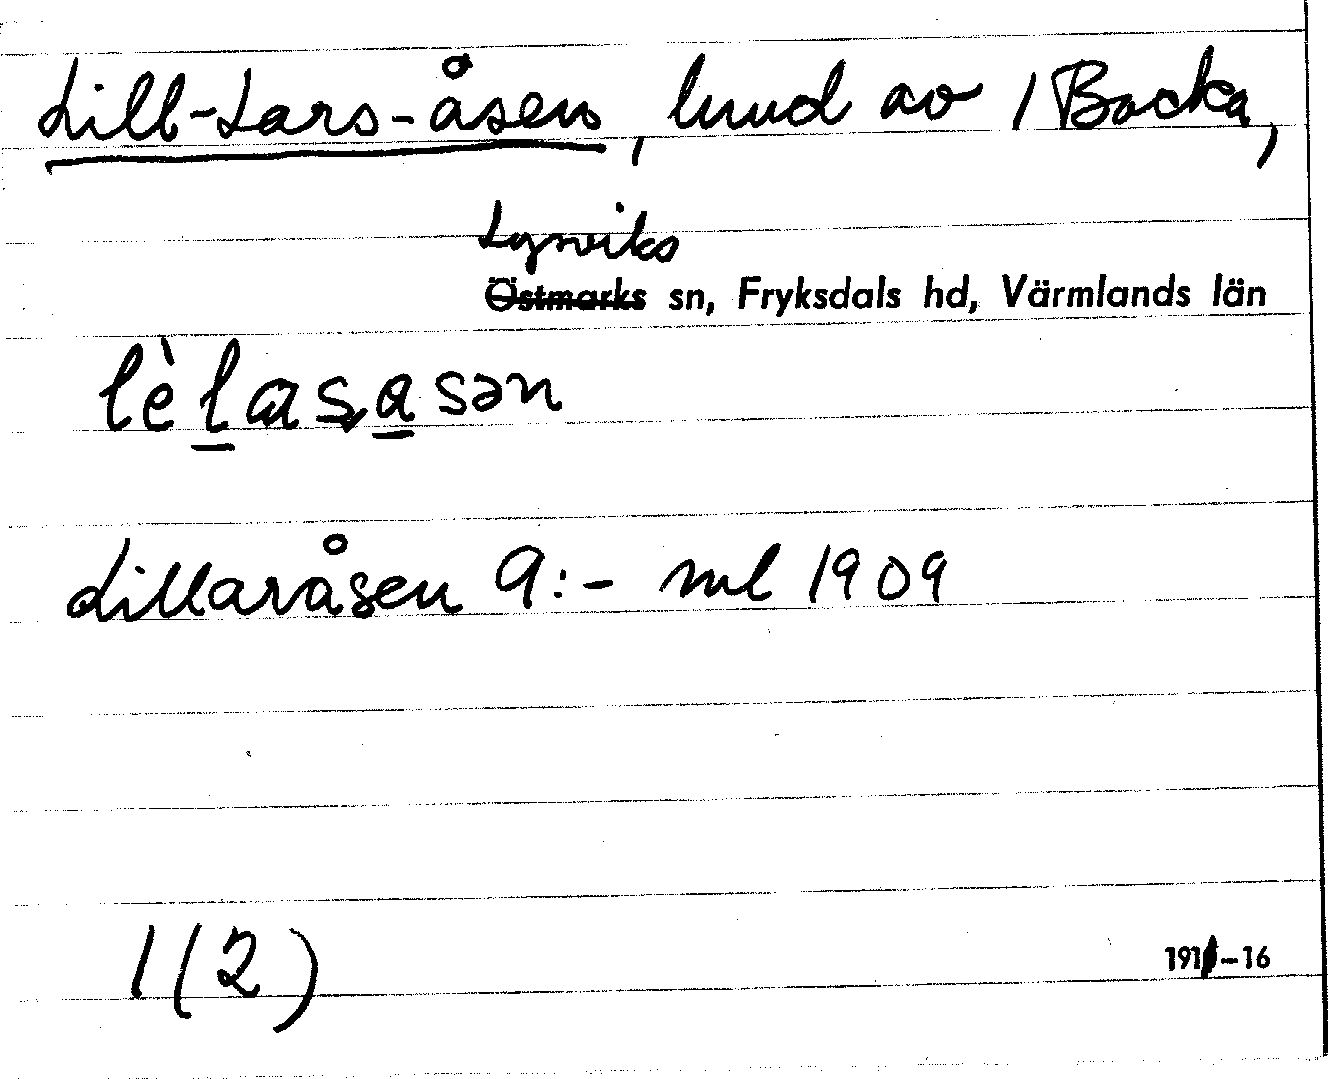 Lill-Lars-åsen, lnud av 1 Backa,
Lysviks
Östmarks sn, Fryksdals hd, Värmlands län
lèlasasən
Lillaråsen 9:- ml 1909
1(2)
191 -16